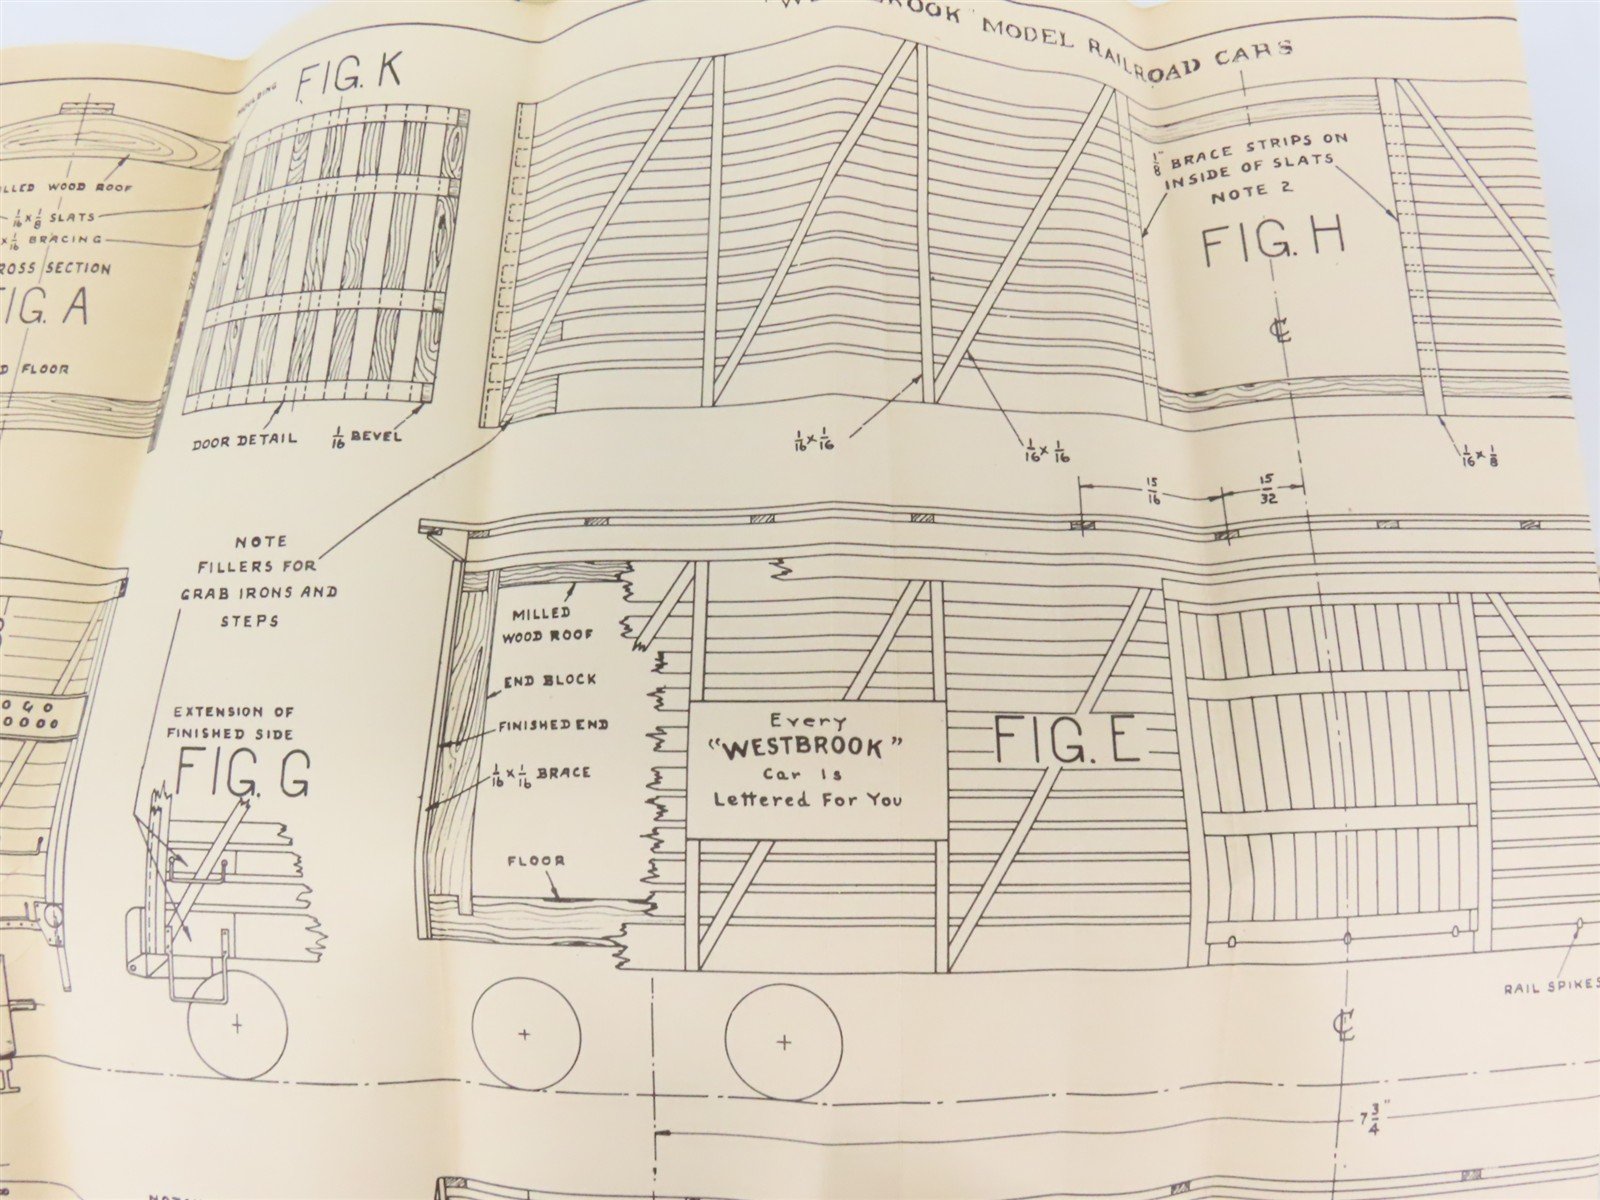 MODEL RAILROAD CARS
FIG. K
WOOD ROOF
1/16 x 1/8 SLATS
x 1/16 BRACING
SECTION
FIG. A
FLOOR
DOOR DETAIL
1/16 BEVEL
1/8" BRACE STRIPS ON
INSIDE OF SLATS
NOTE 2
FIG. H
℄
1/16 x 1/16
1/16 x 1/16
1/16 x 1/8
15/16
15/32
NOTE
FILLERS FOR
GRAB IRONS AND
STEPS
MILLED
WOOD ROOF
END BLOCK
FINISHED END
1/16 x 1/16 BRACE
FLOOR
EXTENSION OF
FINISHED SIDE
FIG. G
Every
"WESTBROOK"
Car Is
Lettered For You
FIG. E
RAIL SPIKES
℄
7 3/4"